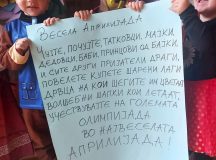 Весела Априлијада
Чујте, почујте татковци, мајки,
дедовци, баби, принцови од бајки,
и сите други пријатели драги
повелете купете шарени лаги
дрвца на кои шегите ни цветаат
волшебни шапки кои летаат,
учествувајте на големата
олимпијада
во највеселата
Априлијада!